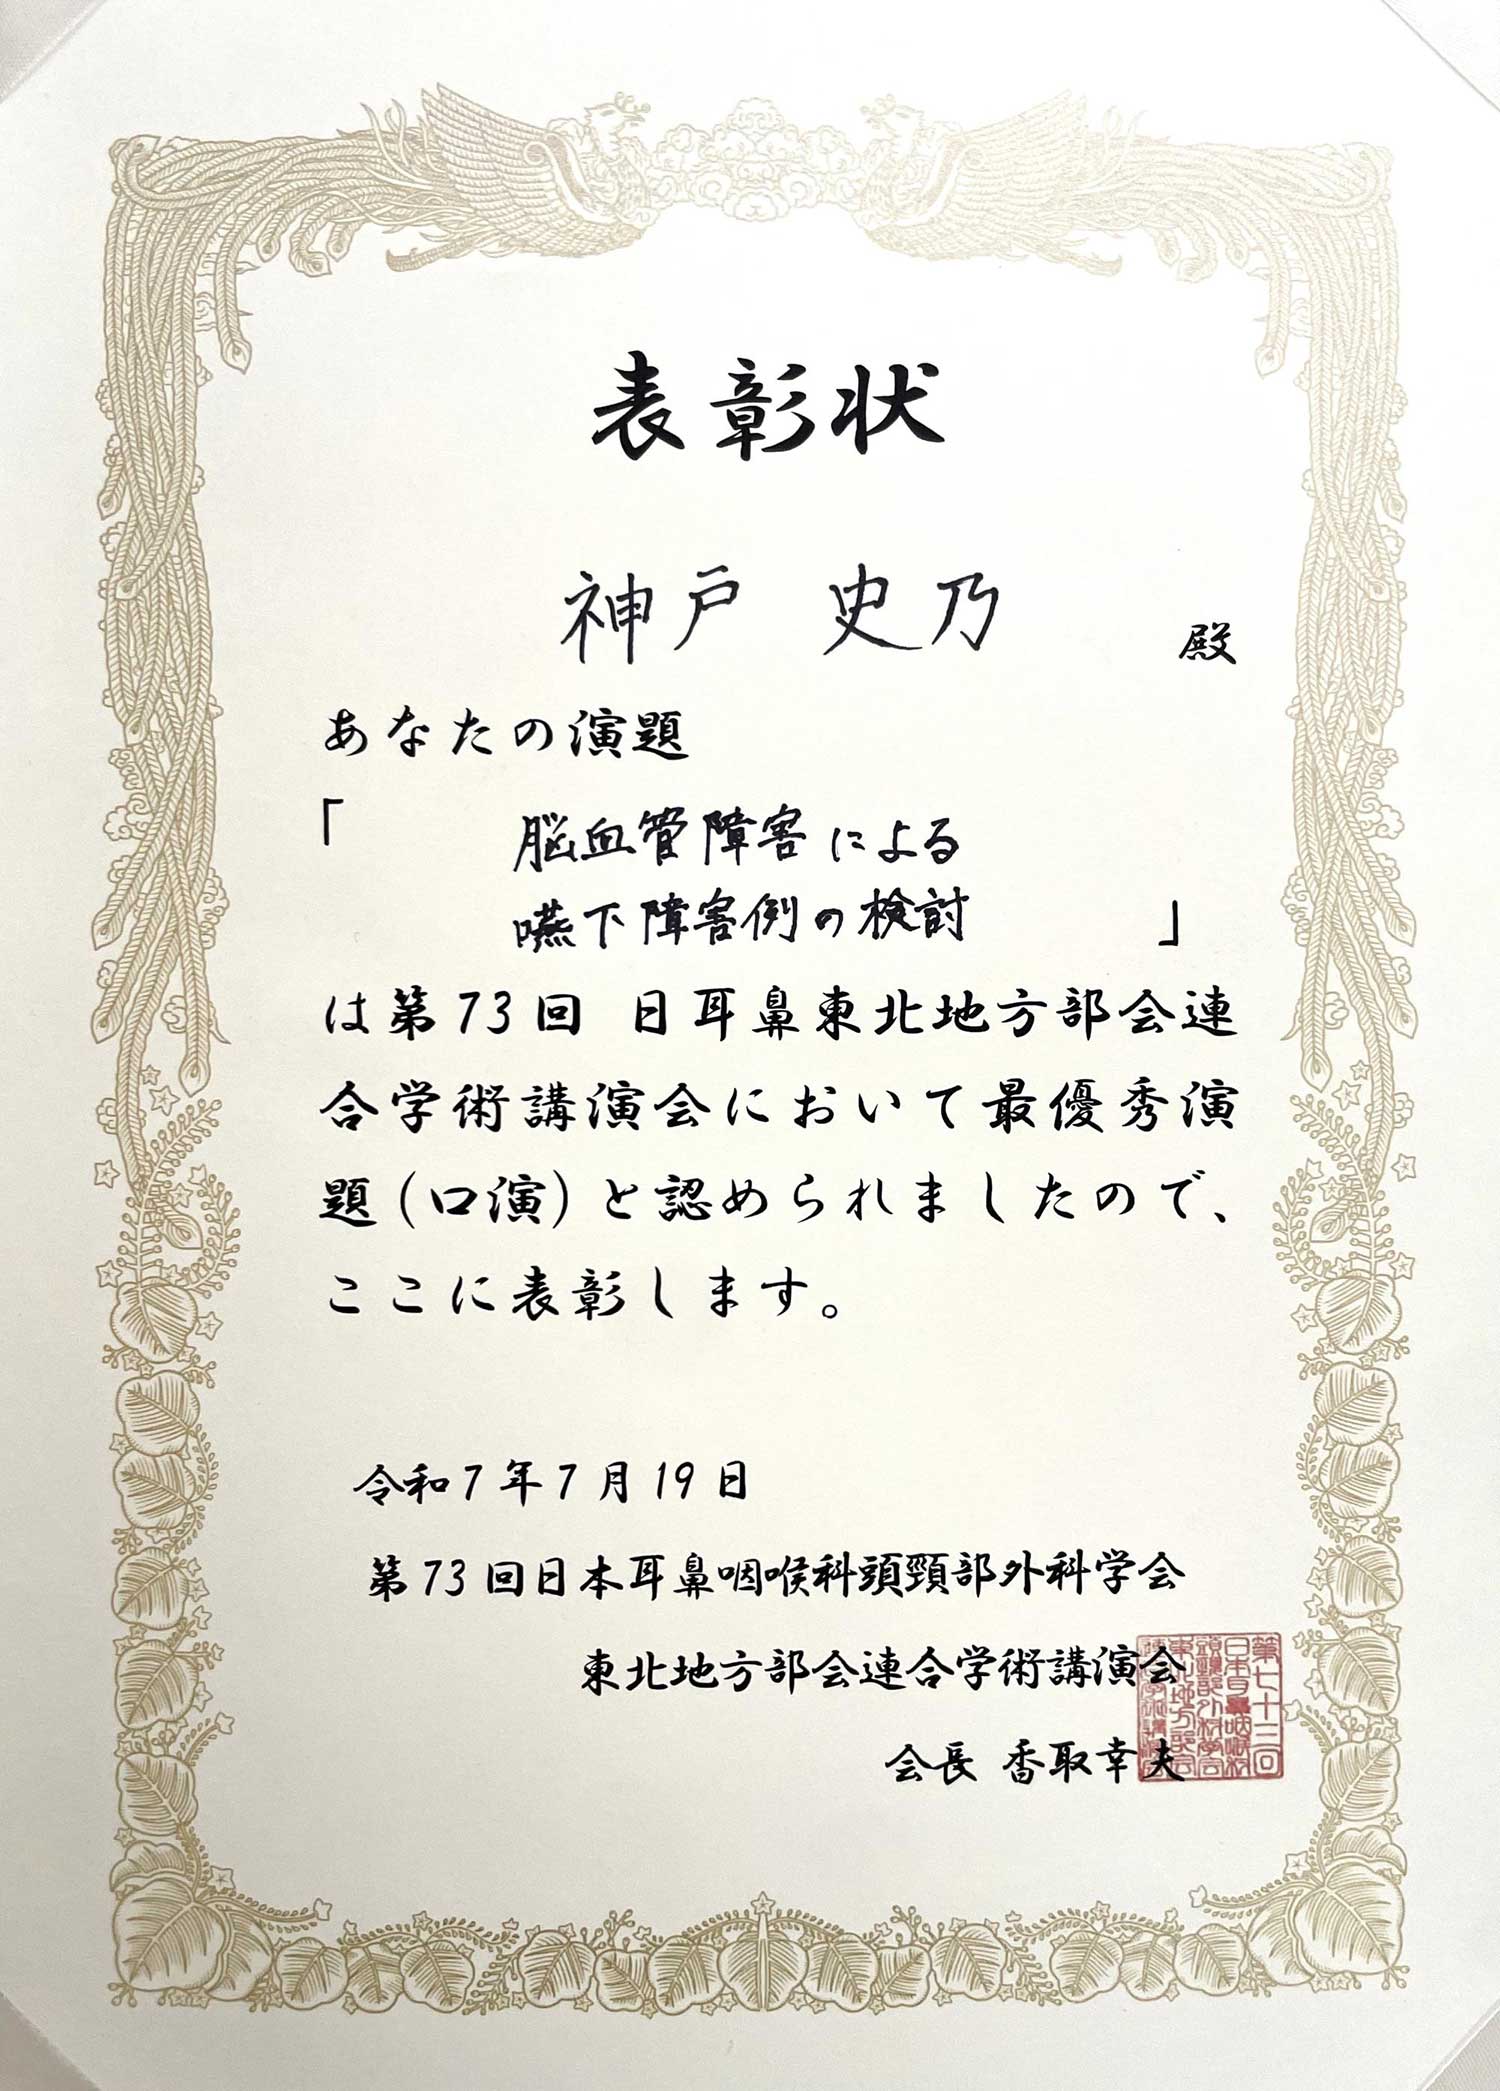 表彰状
神戸 史乃 殿
あなたの演題
「脳血管障害による
嚥下障害例の検討」
は第73回 日耳鼻東北地方部会連
合学術講演会において最優秀演
題(口演)と認められましたので、
ここに表彰します。
令和7年7月19日
第73回日本耳鼻咽喉科頭頸部外科学会
東北地方部会連合学術講演会
会長 香取幸夫
第七十三回
日本耳鼻咽喉科
頭頸部外科学会
東北地方部会
連合学術講演会